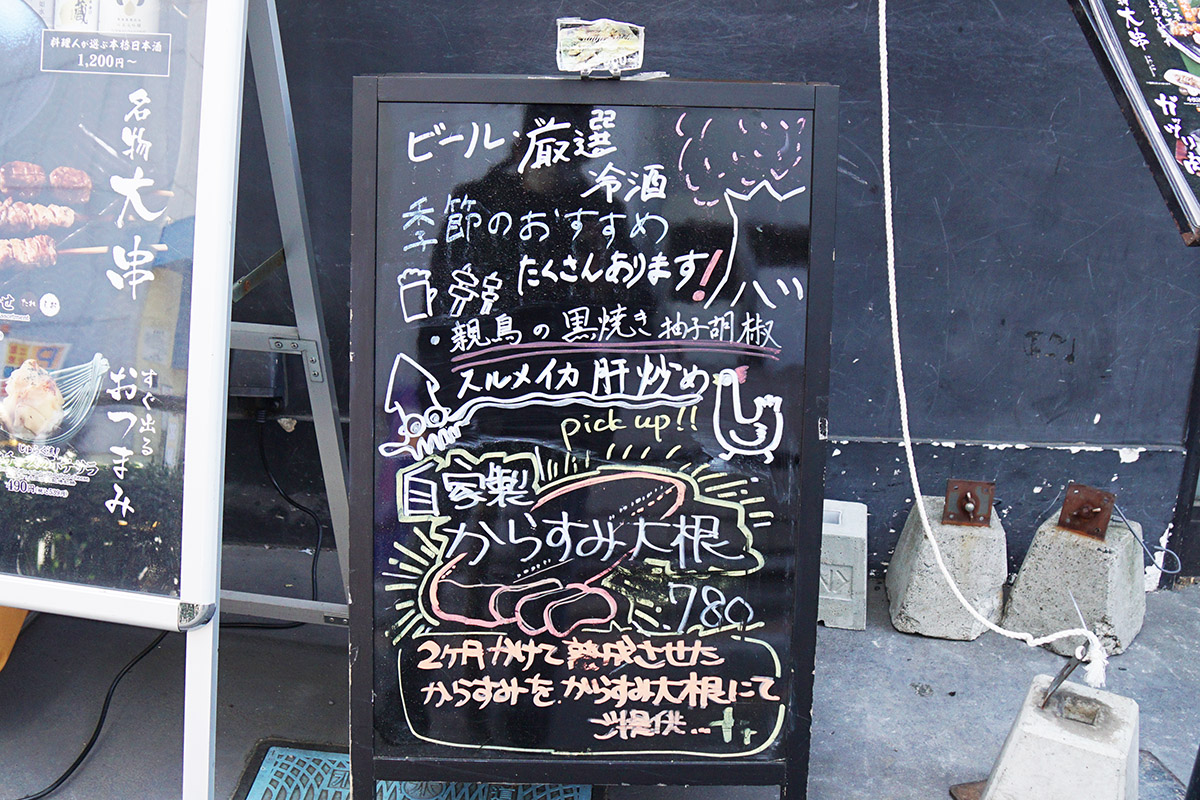 料理人が選ぶ本格日本酒
1,200円～
名物大串
たれ
すぐ出る
おつまみ
490円
ビール・厳選
冷酒
季節のおすすめ
たくさんあります!
・親鳥の黒焼き柚子胡椒
スルメイカ肝炒め
pick up!!
自家製
からすみ大根
780
2ヶ月かけて熟成させた
からすみを、からすみ大根にて
ご提供...
大串